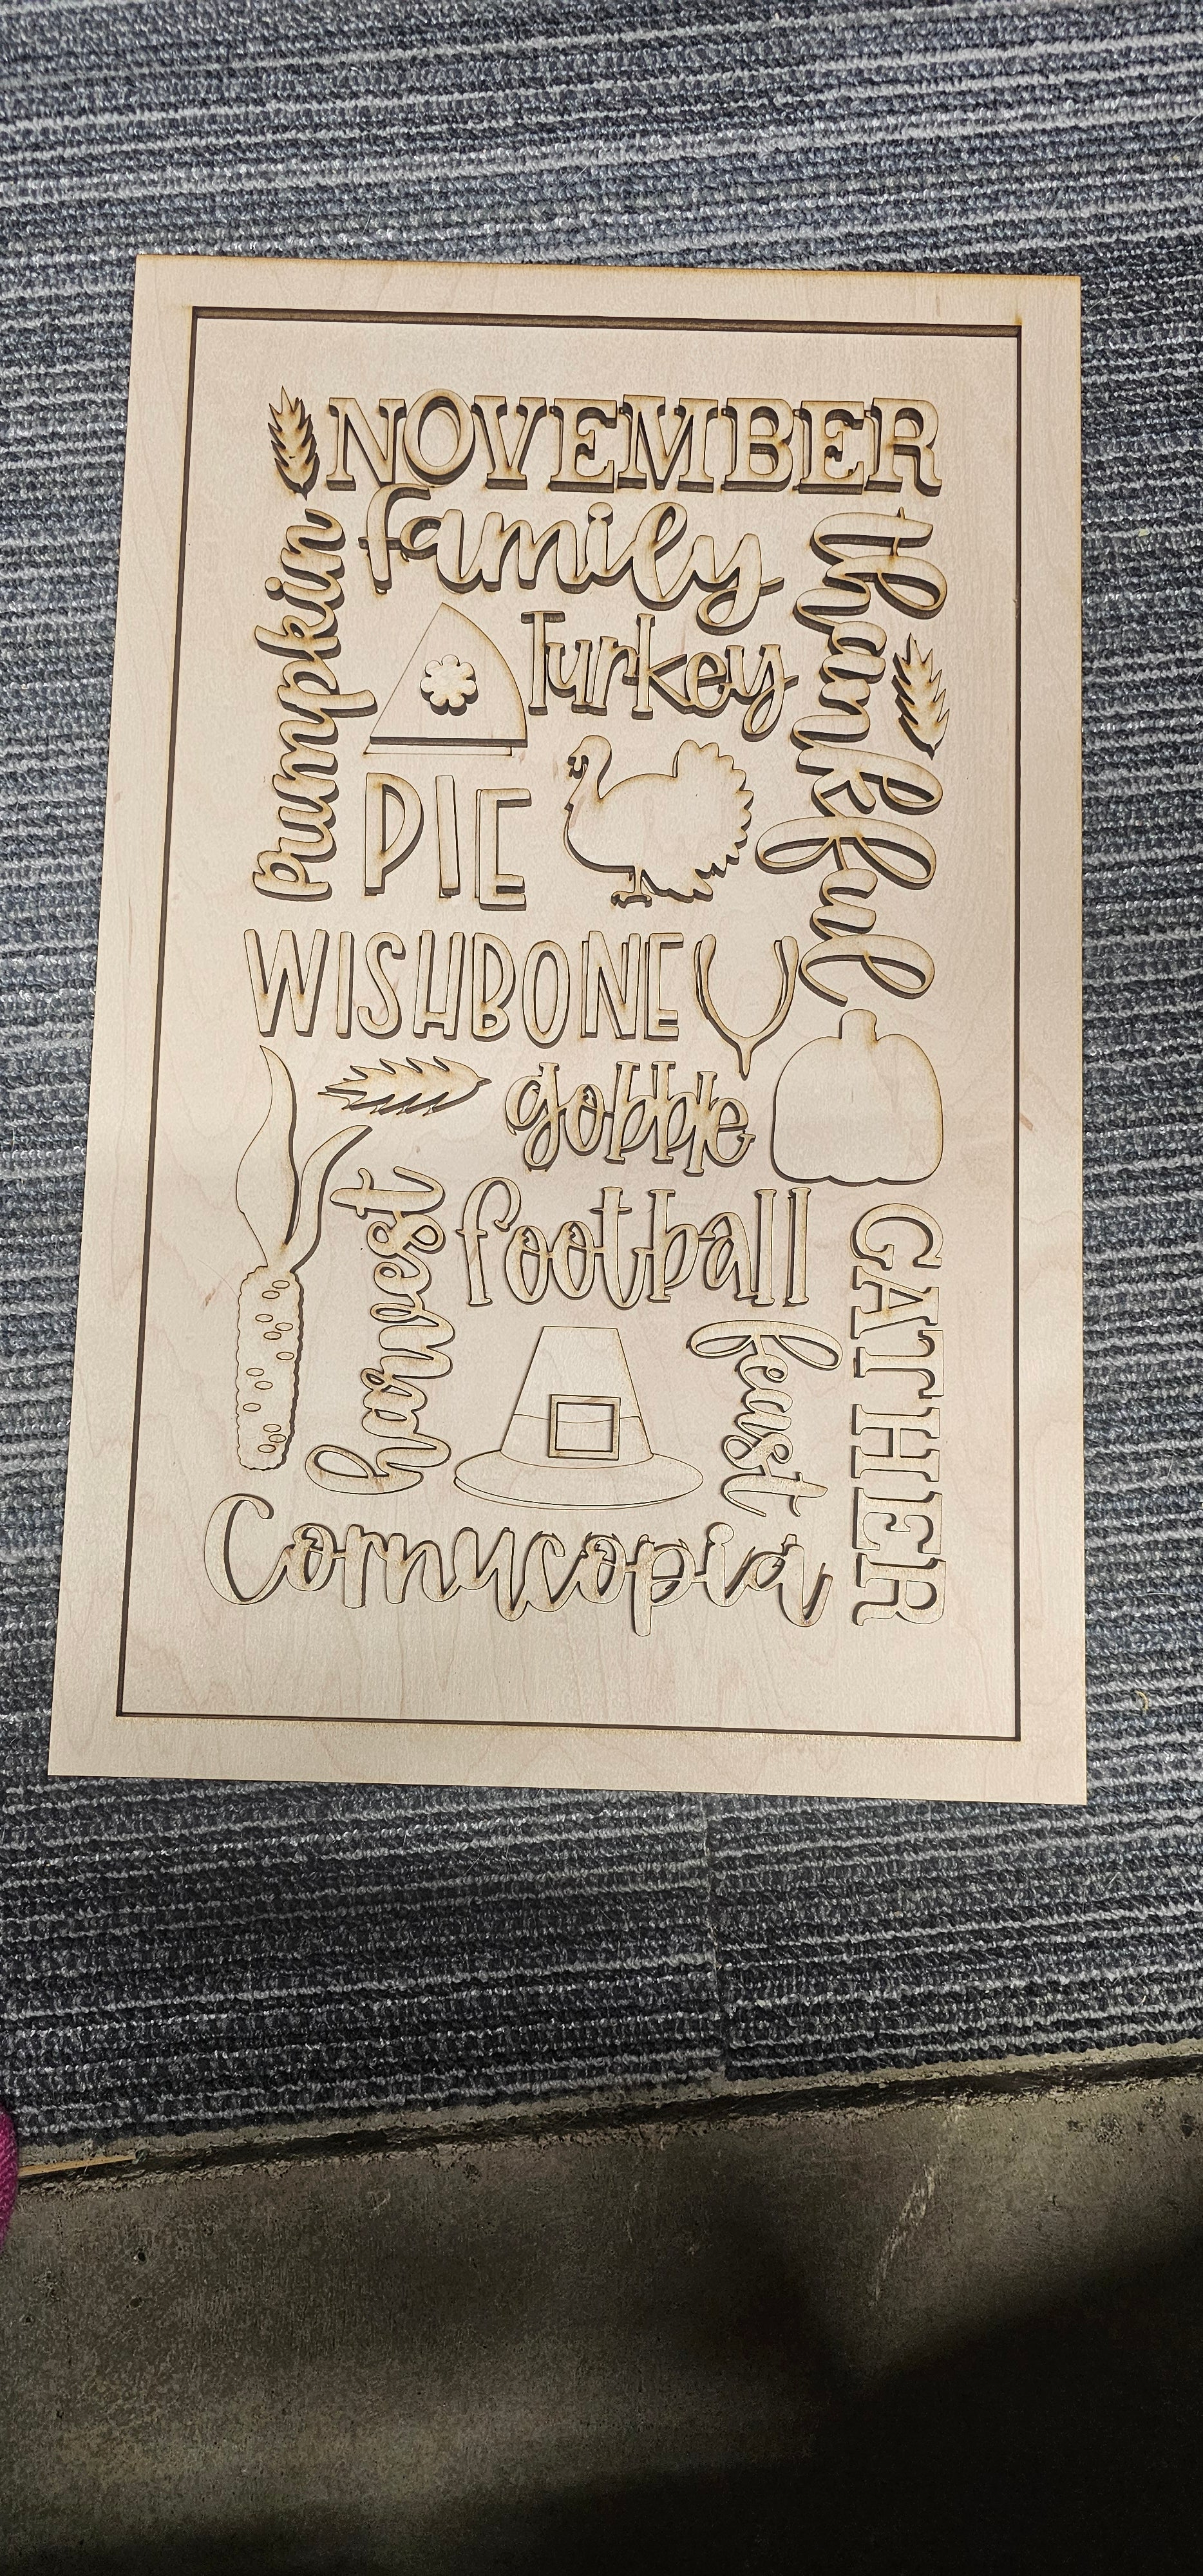 NOVEMBER
family
pumpkin
thankful
Turkey
PIE
WISHBONE
gobble
harvest
football
feast
GATHER
Cornucopia